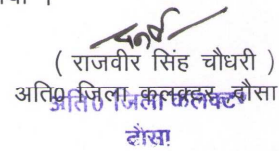 ( राजवीर सिंह चौधरी )
अति0 जिला कलक्टर, दौसा
अति0 जिला कलक्टर
दौसा